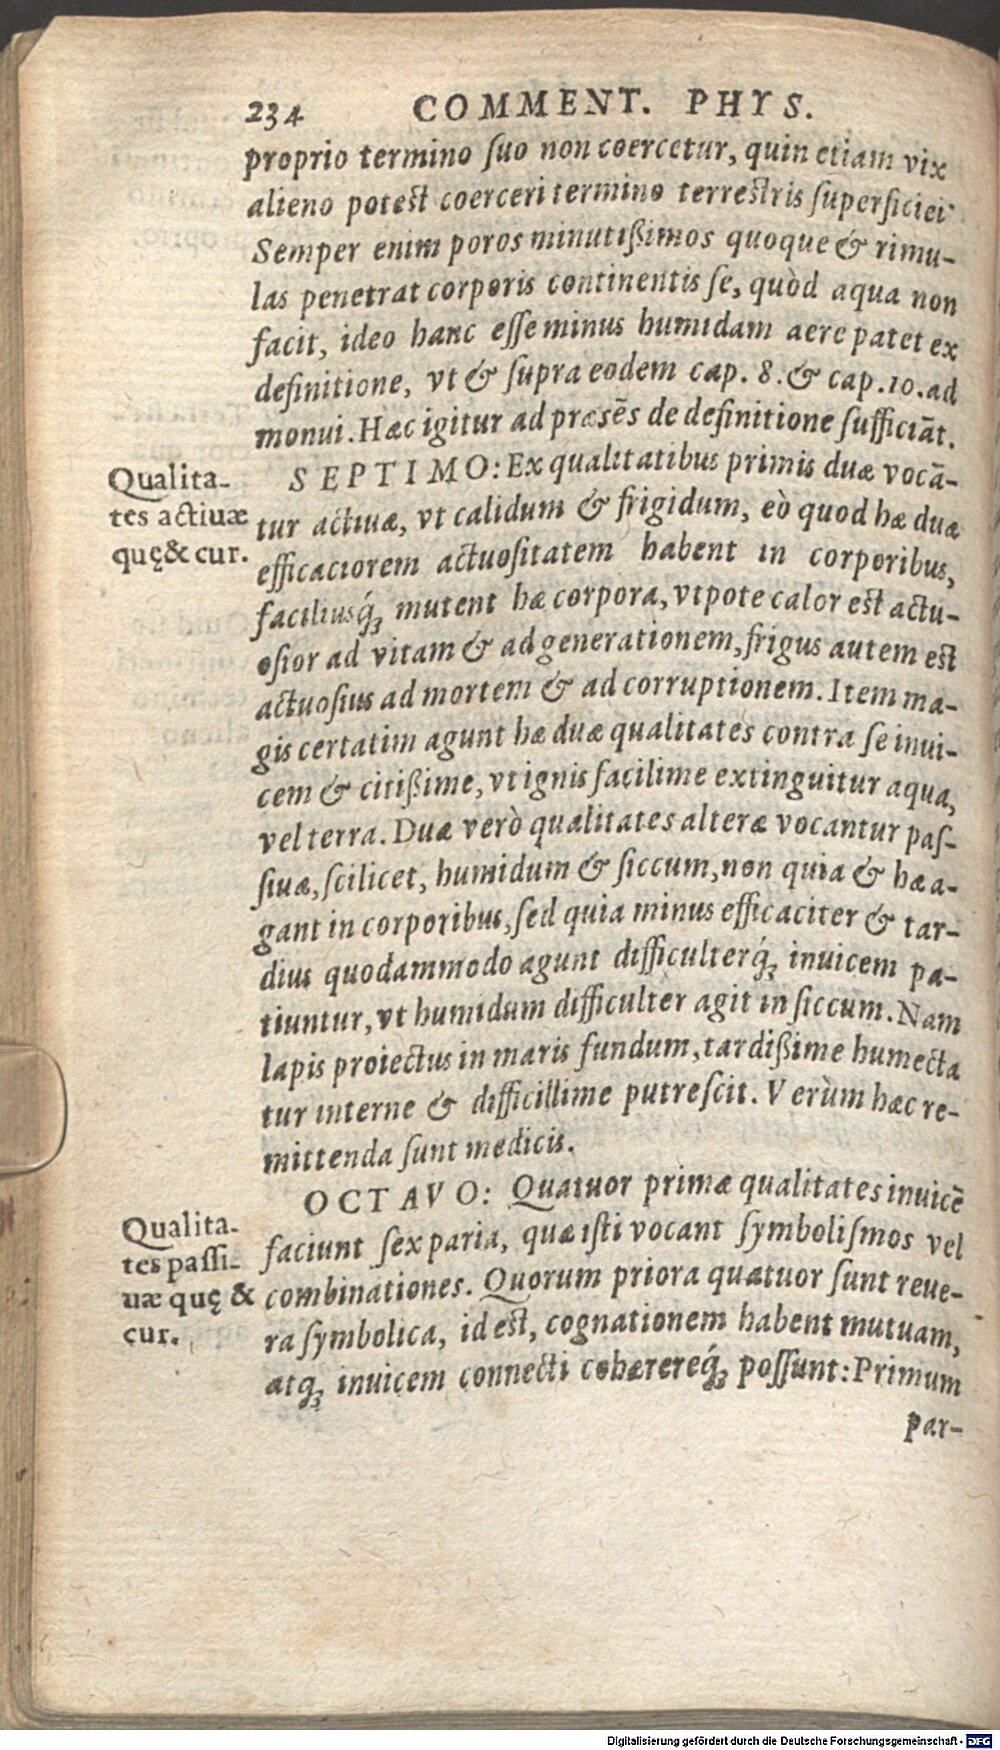 234 COMMENT. PHYS.
proprio termino ſuo non coercetur, quin etiam vix
alieno poteſt coerceri termino terreſtris ſuperficiei
Semper enim poros minutißimos quoque & rimu-
las penetrat corporis continentis ſe, quòd aqua non
facit, ideo hanc eſſe minus humidam aere patet ex
definitione, vt & ſupra eodem cap. 8. & cap. 10. ad
monui. Hæc igitur ad præsēs de definitione ſufficiāt.
Qualita-
tes actiuæ
quę & cur.
SEPTIMO: Ex qualitatibus primis duæ vocā-
tur actiuæ, vt calidum & frigidum, eò quod hæ duæ
efficaciorem actuoſitatem habent in corporibus,
faciliusq́; mutent hæ corpora, vtpote calor eſt actu-
oſior ad vitam & ad generationem, frigus autem eſt
actuoſius ad mortem & ad corruptionem. Item ma-
gis certatim agunt hæ duæ qualitates contra ſe inui-
cem & citißime, vt ignis facilime extinguitur aqua,
vel terra. Duæ verò qualitates alteræ vocantur paſ-
ſiuæ, ſcilicet, humidum & ſiccum, non quia & hæ a-
gant in corporibus, ſed quia minus efficaciter & tar-
dius quodammodo agunt difficulterq́; inuicem pa-
tiuntur, vt humidum difficulter agit in ſiccum. Nam
lapis proiectus in maris fundum, tardißime humecta
tur interne & difficillime putreſcit. Verùm hæc re-
mittenda ſunt medicis.
Qualita-
tes paſſi-
uæ quę &
cur.
OCTAVO: Quatuor primæ qualitates inuicē
faciunt ſex paria, quæ iſti vocant ſymboliſmos vel
combinationes. Quorum priora quatuor ſunt reue-
ra ſymbolica, id eſt, cognationem habent mutuam,
atq; inuicem connecti cohærereq́; poſſunt: Primum
par-
Digitalisierung gefördert durch die Deutsche Forschungsgemeinschaft - DFG